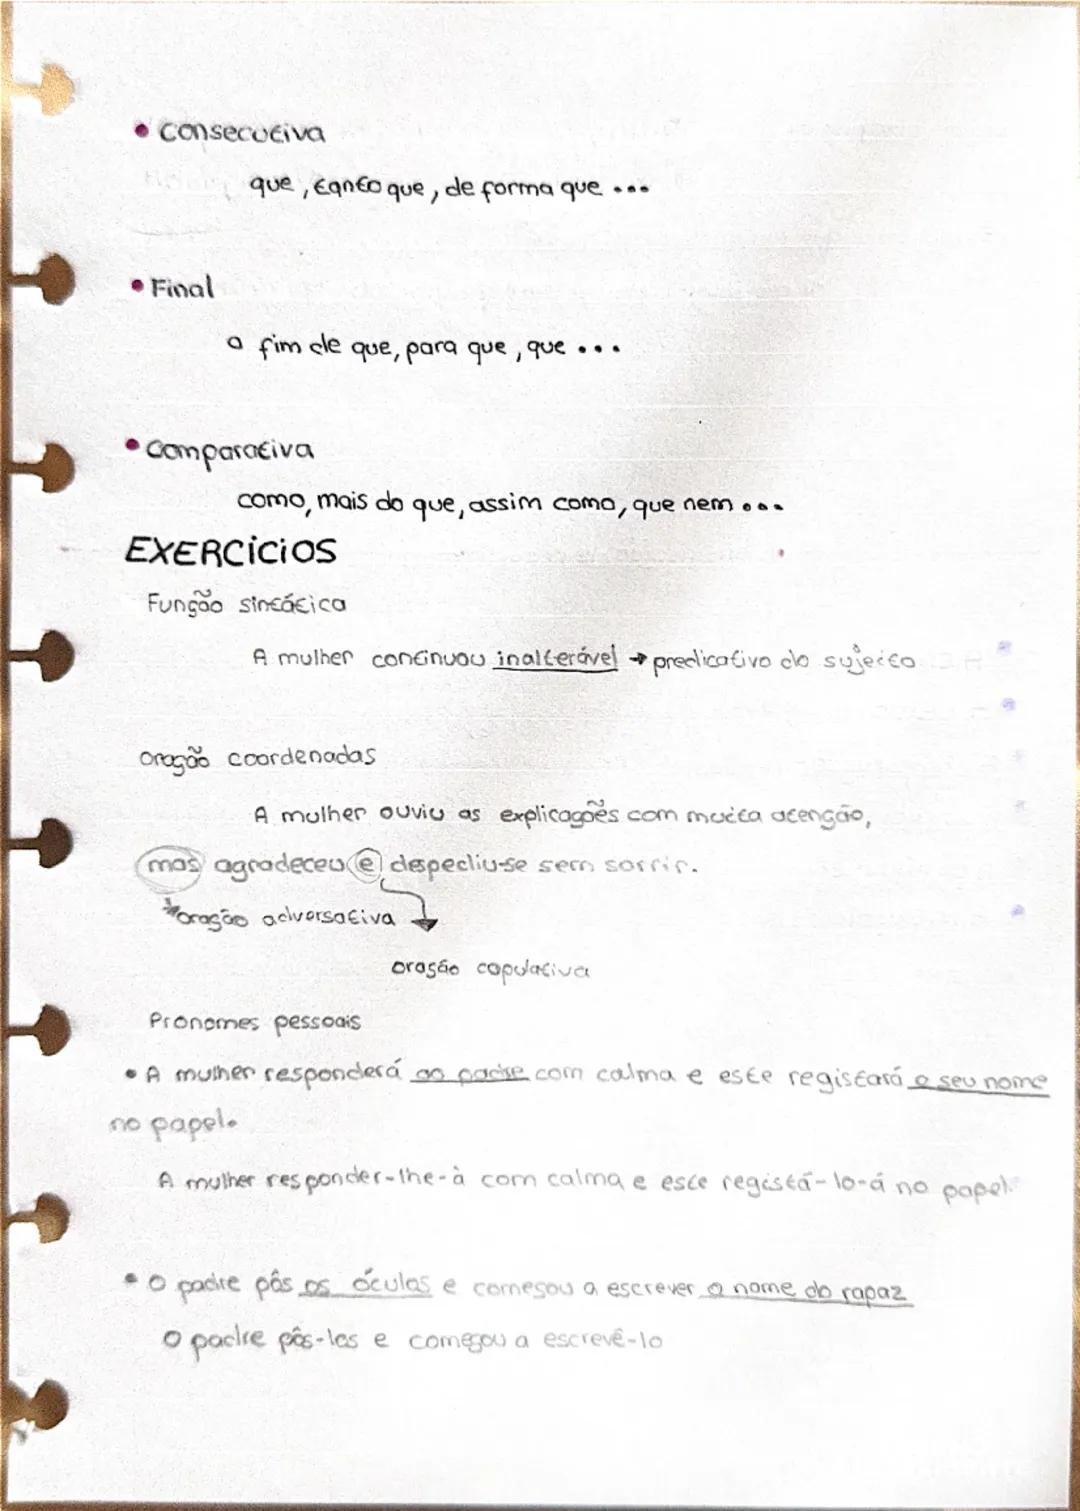 • Consecutiva
que, tanto que, de forma que ...
• Final
a fim de que, para que, que ...
• Comparativa
como, mais do que, assim como, que nem ...
EXERCÍCIOS
Função sintática
A mulher continuou inalterável → predicativo do sujeito
Oração coordenadas
A mulher ouviu as explicações com muita atenção,
mas agradeceu e despediu-se sem sorrir.
oração adversativa
oração copulativa
Pronomes pessoais
• A mulher responderá ao padre com calma e este registará o seu nome
no papel.
A mulher responder-lhe-à com calma e este registá-lo-á no papel.
• O padre pôs os óculos e começou a escrever o nome do rapaz
O padre pôs-los e começou a escrevê-lo